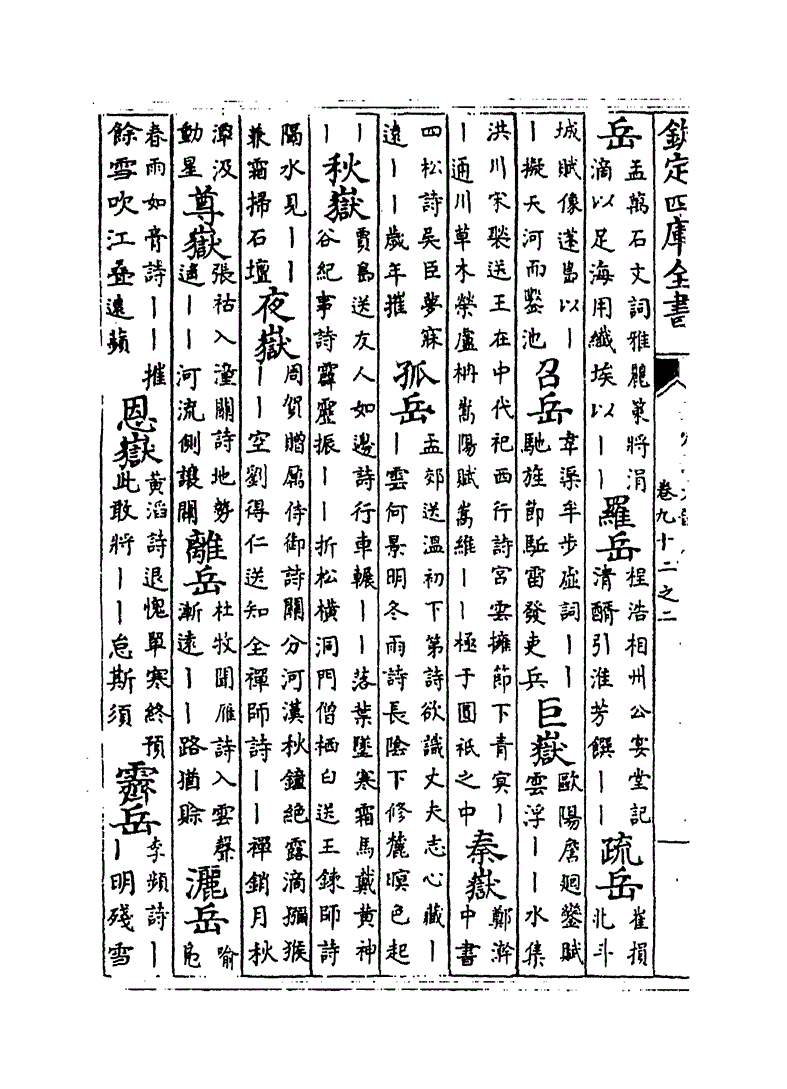 欽定四庫全書
卷九十二之二
岳
孟萬石文詞雅麗策將涓
滴以足海用纖埃以丨丨
羅岳
桯浩相州公宴堂記
清醑引淮芳饌丨丨
疏岳
崔損
北斗
城賦像蓬島以丨
丨擬天河而鑿池
召岳
韋渠牟步虛詞丨丨
馳旌節駈雷發吏兵
巨嶽
歐陽詹廻鑾賦
雲浮丨丨水集
洪川宋褧送王在中代祀西行詩宮雲擁節下青㝠丨
丨通川草木榮盧柟嵩陽賦嵩維丨丨極于圓祇之中
秦嶽
鄭澣
中書
四松詩吳臣夢寐
遠丨丨歲年摧
孤岳
孟郊送溫初下第詩欲識丈夫志心藏丨
丨雲何景明冬雨詩長陰下修麓暝色起
丨
丨
秋嶽
賈島送友人如邊詩行車輾丨丨落葉墜寒霜馬戴黄神
谷紀事詩霹靂振丨丨折松橫洞門僧栖白送王鍊師詩
隔水見丨丨
兼霜掃石壇
夜嶽
周賀贈厲侍御詩關分河漢秋鐘絕露滴獼猴
丨丨空劉得仁送知全禪師詩丨丨禪銷月秋
潭汲
動星
尊嶽
張祜入潼關詩地勢
遒丨丨河流側讓關
離岳
杜牧聞雁詩入雲聲
漸遠丨丨路猶賖
灑岳
喻
凫
春雨如膏詩丨丨摧
餘雪吹江叠遠蘋
恩嶽
黄滔詩退愧單寒終預
此敢將丨丨怠斯須
霽岳
李頻詩丨
丨明殘雪